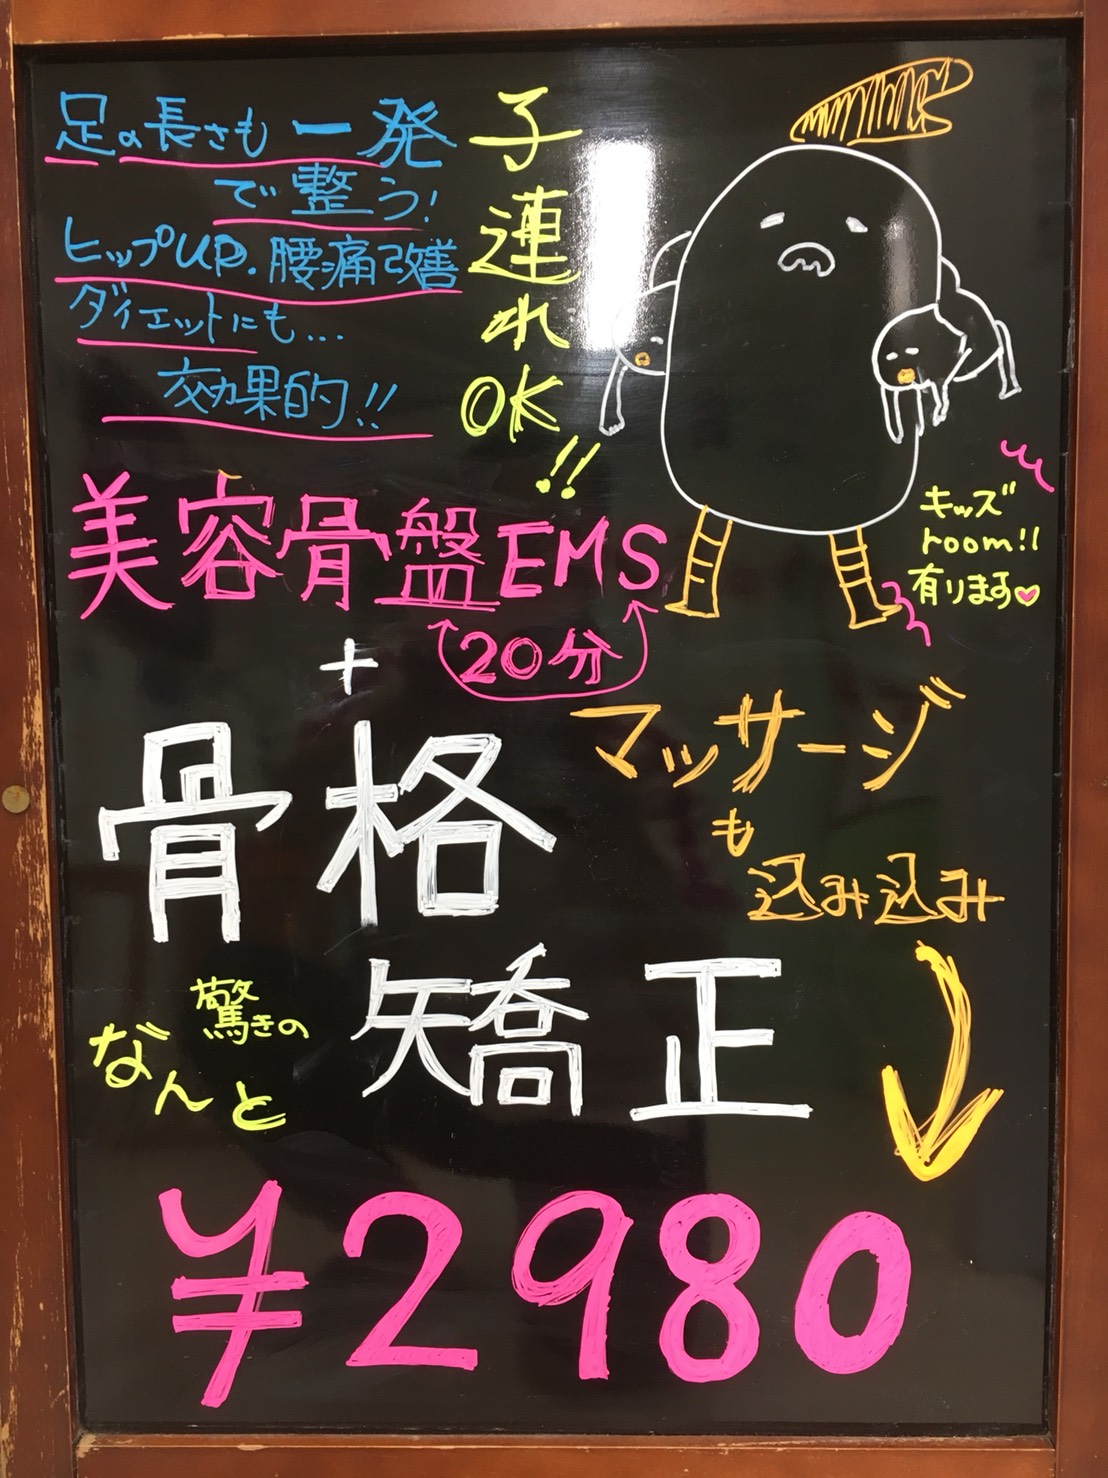 足の長さも一発
で整う!
ヒップUP.腰痛改善
ダイエットにも...
効果的!!
子連れOK!!
キッズ
room!!
有ります♡
美容骨盤EMS
20分
+
骨格
矯正
マッサージ
も
込み込み
驚きの
なんと
¥2980